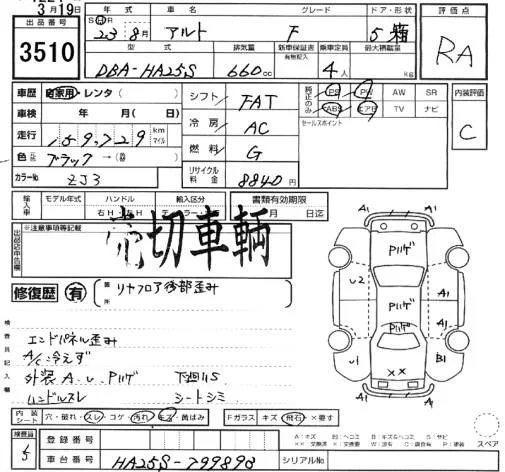 3月19日
出品番号
3510
年式 車名 グレード ドア・形状
S H R 23年 8月 アルト F 5 箱
型式 排気量 新車保証書 有無記入 乗車定員 最大積載量
DBA-HA25S 660cc 4人 kg
評価点
RA
車歴 自家用・レンタ( )
車検 年 月( )
走行 159,729 km マイル
色 ブラック →( )
カラーNo. ZJ3
シフト FAT
冷房 AC
燃料 G
リサイクル料金 8840円
純正のみ PS PW AW SR
ABS エアB TV ナビ
セールスポイント
内装評価
C
輸入車 モデル年式 ハンドル 輸入区分
右H・左H ディーラー
書類有効期限
月 日迄
出品店申告欄 ※注意事項等記載
売切車輌
修復歴 有 箇所 リヤフロア後部歪み
検査員記入欄
エンドパネル歪み
A/C冷えず
外装 A.U.Pハゲ 下廻りS
ハンドルスレ シートシミ
A1 A1
Pハゲ
U2 A1
Pハゲ
Pハゲ A1
U1 ×× B1
A1
内装シート 穴・破れ・スレ・コゲ・汚れ・キズ・黄ばみ Fガラス キズ・飛石・×要す
検査員
登録番号
車台番号 HA25S-799898 シリアルNo.
A:キズ U:凹ミ B:キズ&凹ミ S:サビ
スペア